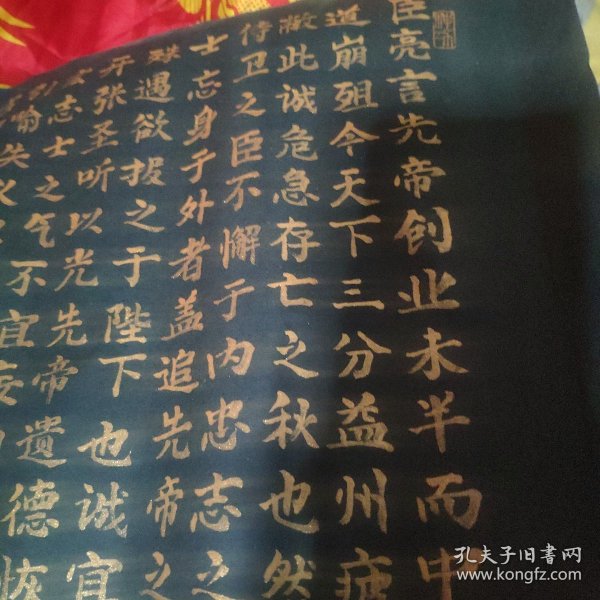 臣亮言先帝创业未半而中
道崩殂今天下三分益州疲
敝此诚危急存亡之秋也然
侍卫之臣不懈于内忠志之
士忘身于外者盖追先帝之
殊遇欲报之于陛下也诚宜
开张圣听以光先帝遗德恢
志士之气不宜妄
引喻失义
孔夫子旧书网
www.kongfz.com